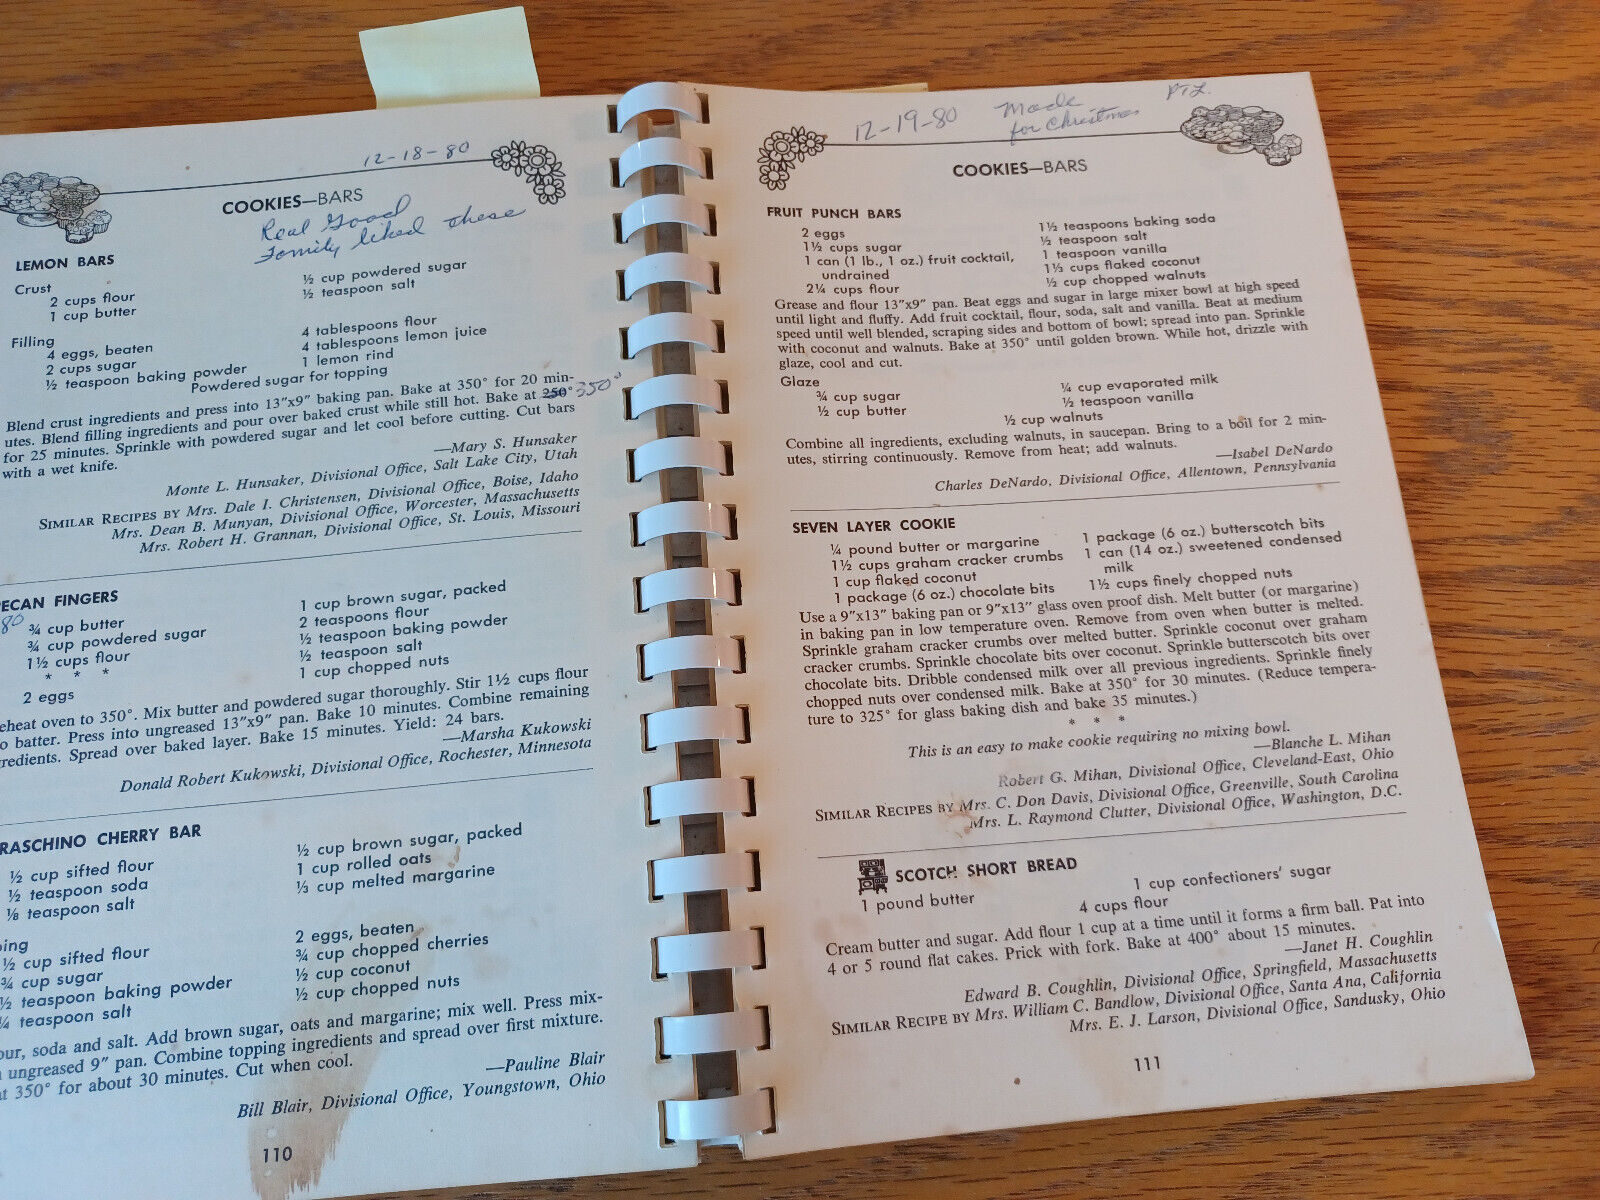 12-18-80
COOKIES—BARS
Real Good
Family liked these
LEMON BARS
Crust
2 cups flour
1 cup butter
½ cup powdered sugar
½ teaspoon salt
Filling
4 eggs, beaten
2 cups sugar
½ teaspoon baking powder
4 tablespoons flour
4 tablespoons lemon juice
1 lemon rind
Powdered sugar for topping
Blend crust ingredients and press into 13"x9" baking pan. Bake at 350° for 20 min-
utes. Blend filling ingredients and pour over baked crust while still hot. Bake at 250° 350°
for 25 minutes. Sprinkle with powdered sugar and let cool before cutting. Cut bars
with a wet knife.
—Mary S. Hunsaker
Monte L. Hunsaker, Divisional Office, Salt Lake City, Utah
SIMILAR RECIPES BY Mrs. Dale I. Christensen, Divisional Office, Boise, Idaho
Mrs. Dean B. Munyan, Divisional Office, Worcester, Massachusetts
Mrs. Robert H. Grannan, Divisional Office, St. Louis, Missouri
ECAN FINGERS
80
¾ cup butter
¾ cup powdered sugar
1½ cups flour
* * *
2 eggs
1 cup brown sugar, packed
2 teaspoons flour
½ teaspoon baking powder
½ teaspoon salt
1 cup chopped nuts
eheat oven to 350°. Mix butter and powdered sugar thoroughly. Stir 1½ cups flour
o batter. Press into ungreased 13"x9" pan. Bake 10 minutes. Combine remaining
redients. Spread over baked layer. Bake 15 minutes. Yield: 24 bars.
—Marsha Kukowski
Donald Robert Kukowski, Divisional Office, Rochester, Minnesota
RASCHINO CHERRY BAR
½ cup sifted flour
½ teaspoon soda
⅛ teaspoon salt
½ cup brown sugar, packed
1 cup rolled oats
⅓ cup melted margarine
ping
½ cup sifted flour
¾ cup sugar
½ teaspoon baking powder
¼ teaspoon salt
2 eggs, beaten
¾ cup chopped cherries
½ cup coconut
½ cup chopped nuts
our, soda and salt. Add brown sugar, oats and margarine; mix well. Press mix-
ungreased 9" pan. Combine topping ingredients and spread over first mixture.
at 350° for about 30 minutes. Cut when cool.
—Pauline Blair
Bill Blair, Divisional Office, Youngstown, Ohio
110
12-19-80 Made
for Christmas
PTL
COOKIES—BARS
FRUIT PUNCH BARS
2 eggs
1½ cups sugar
1 can (1 lb., 1 oz.) fruit cocktail,
undrained
2¼ cups flour
1½ teaspoons baking soda
½ teaspoon salt
1 teaspoon vanilla
1⅓ cups flaked coconut
½ cup chopped walnuts
Grease and flour 13"x9" pan. Beat eggs and sugar in large mixer bowl at high speed
until light and fluffy. Add fruit cocktail, flour, soda, salt and vanilla. Beat at medium
speed until well blended, scraping sides and bottom of bowl; spread into pan. Sprinkle
with coconut and walnuts. Bake at 350° until golden brown. While hot, drizzle with
glaze, cool and cut.
Glaze
¾ cup sugar
½ cup butter
¼ cup evaporated milk
½ teaspoon vanilla
½ cup walnuts
Combine all ingredients, excluding walnuts, in saucepan. Bring to a boil for 2 min-
utes, stirring continuously. Remove from heat; add walnuts.
—Isabel DeNardo
Charles DeNardo, Divisional Office, Allentown, Pennsylvania
SEVEN LAYER COOKIE
¼ pound butter or margarine
1½ cups graham cracker crumbs
1 cup flaked coconut
1 package (6 oz.) chocolate bits
1 package (6 oz.) butterscotch bits
1 can (14 oz.) sweetened condensed
milk
1½ cups finely chopped nuts
Use a 9"x13" baking pan or 9"x13" glass oven proof dish. Melt butter (or margarine)
in baking pan in low temperature oven. Remove from oven when butter is melted.
Sprinkle graham cracker crumbs over melted butter. Sprinkle coconut over graham
cracker crumbs. Sprinkle chocolate bits over coconut. Sprinkle butterscotch bits over
chocolate bits. Dribble condensed milk over all previous ingredients. Sprinkle finely
chopped nuts over condensed milk. Bake at 350° for 30 minutes. (Reduce tempera-
ture to 325° for glass baking dish and bake 35 minutes.)
* * *
This is an easy to make cookie requiring no mixing bowl.
—Blanche L. Mihan
Robert G. Mihan, Divisional Office, Cleveland-East, Ohio
SIMILAR RECIPES BY Mrs. C. Don Davis, Divisional Office, Greenville, South Carolina
Mrs. L. Raymond Clutter, Divisional Office, Washington, D.C.
SCOTCH SHORT BREAD
1 pound butter
1 cup confectioners' sugar
4 cups flour
Cream butter and sugar. Add flour 1 cup at a time until it forms a firm ball. Pat into
4 or 5 round flat cakes. Prick with fork. Bake at 400° about 15 minutes.
—Janet H. Coughlin
Edward B. Coughlin, Divisional Office, Springfield, Massachusetts
SIMILAR RECIPE BY Mrs. William C. Bandlow, Divisional Office, Santa Ana, California
Mrs. E. J. Larson, Divisional Office, Sandusky, Ohio
111